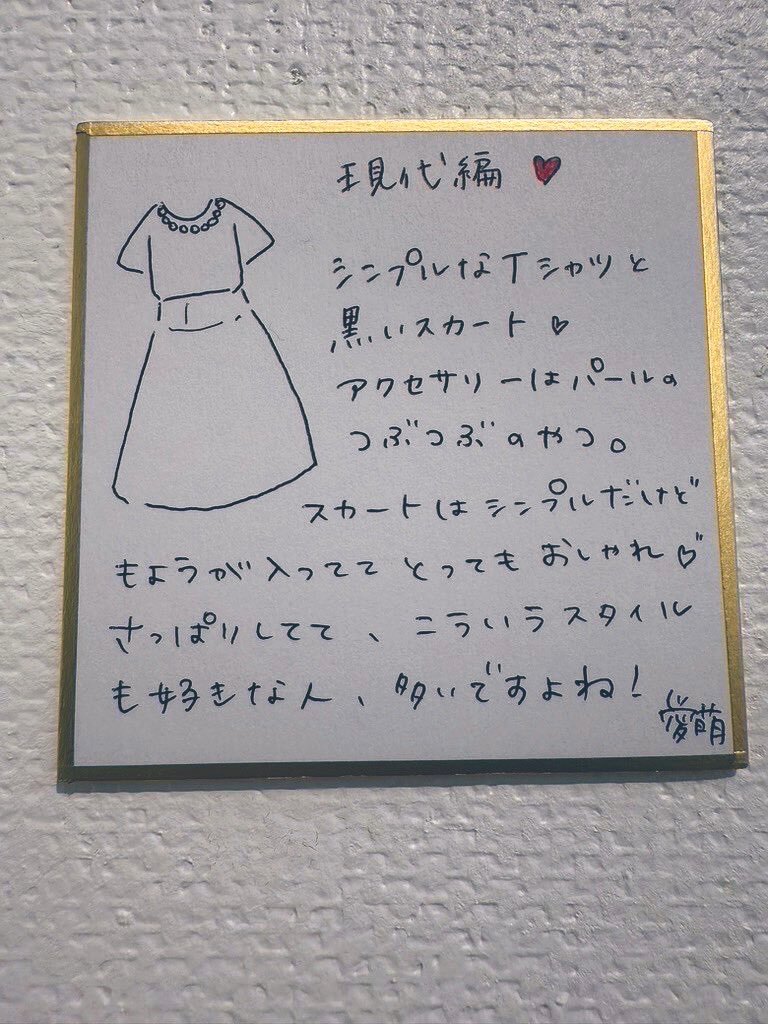 現代編 ♥
シンプルなTシャツと
黒いスカート♡
アクセサリーはパールの
つぶつぶのやつ。
スカートはシンプルだけど
もようが入ってて とっても おしゃれ♡
さっぱりしてて、こういうスタイル
も好きな人、多いですよね!
愛萌